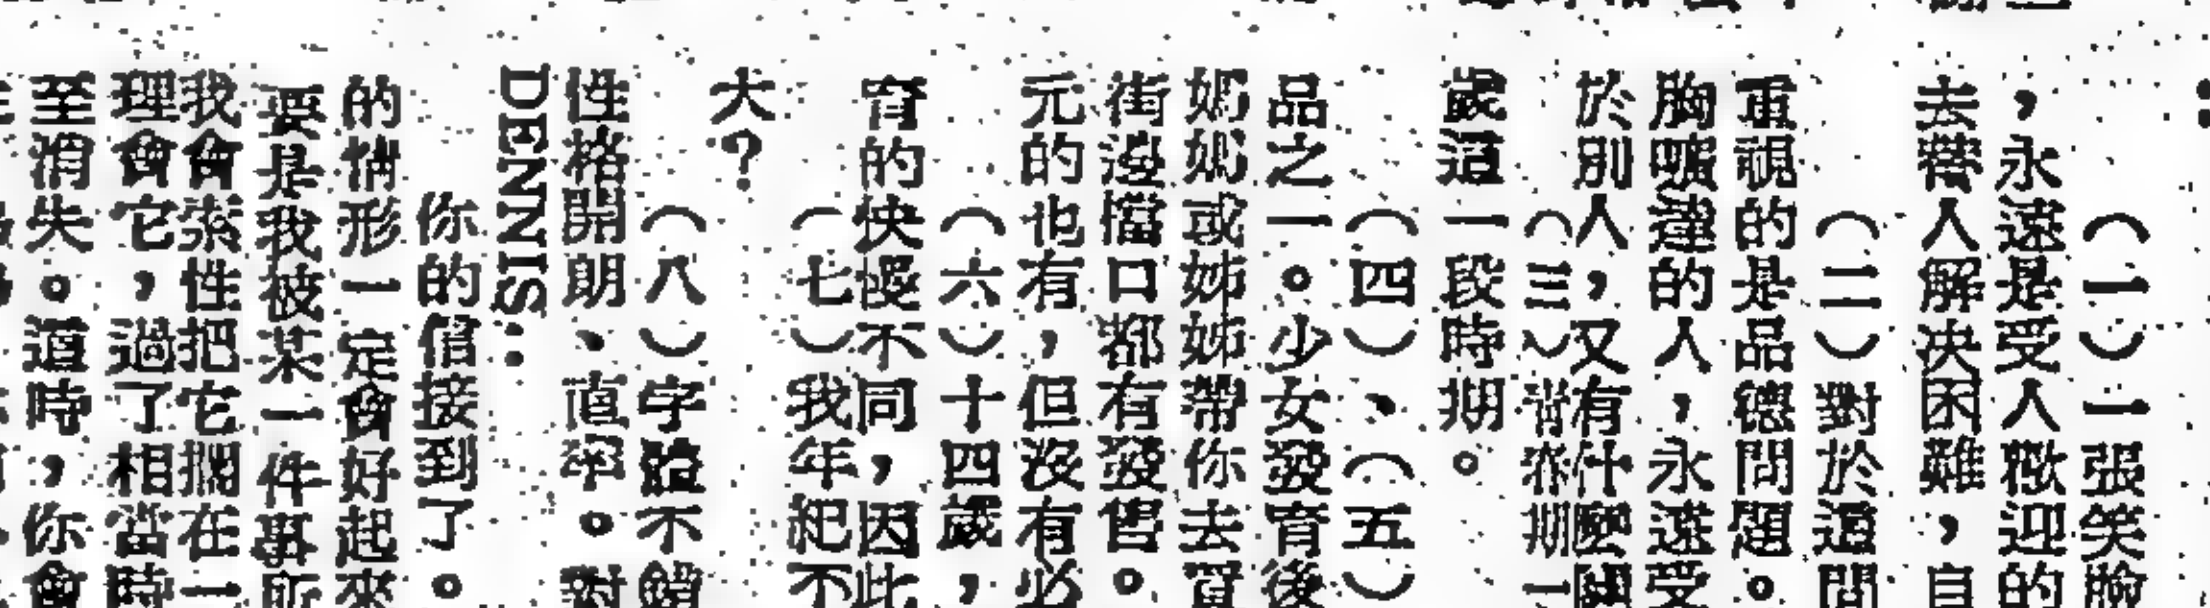 （一）一張笑臉
，永遠是受人歡迎的
去帶人解決困難，自
（二）對於這問
重視的是品德問題。
胸 違的人，永遠受
於別人，又有什麼關
（三）青春期一
歲這一段時期。
（四）、（五）
品之一。少女發育後
媽媽或姊姊帶你去買
街邊檔口都有發售。
元的也有，但沒有必
（六）十四歲，
育的快慢不同，因此
（七）我年紀不
大？
（八）字體不錯
性格開朗、直率。對
DENNIS：
你的信接到了。
的情形一定會好起來
要是我被某一件事所
我會索性把它擱在一
理會它，過了相當時
至消失。這時，你會